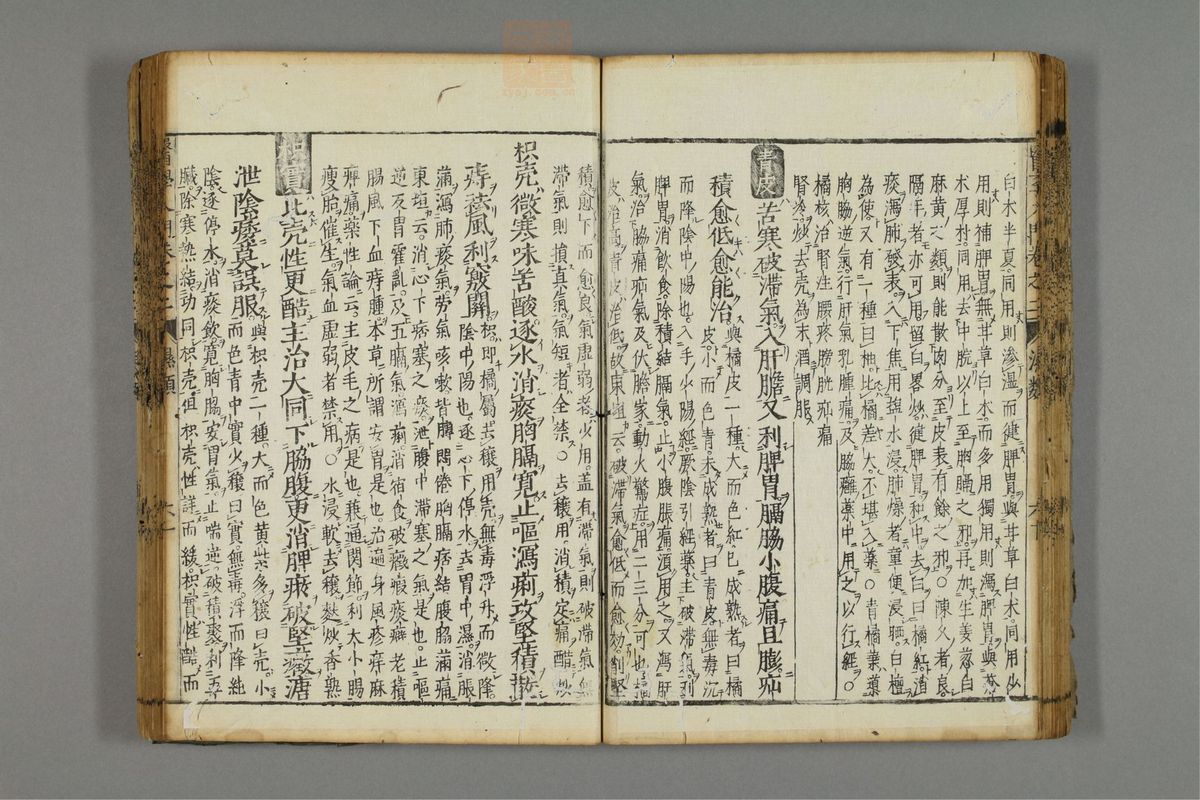 白朮半夏同用則滲湿而健脾胃與甘草白朮同用少
用則補脾胃無甘草白朮而多用獨用則瀉脾胃與蒼
朮厚朴同用去中脘以上至胸膈之邪再加生姜葱白
麻黄之類則能散肉分至皮表有餘之邪陳久者良
膈半者亦可用留白畧炒健脾胃和中去白曰橘紅消
痰瀉肺秘表入下焦用塩水浸肺燥者童便浸晒白檀
為使又有一種曰柚比橘差大不堪入薬○青橘葉導
胸脇逆氣行肝氣乳腫痛及脇癰薬中用之以行経○
橘核治腎疰腰疼膀胱疝痛
腎冷炒去壳為末酒調服
青皮 苦寒破滞氣入肝膽又利脾胃膈脇小腹痛且膨疝
積愈低愈能治 與橘皮一種大而色紅已成熟者曰橘
皮小而色青未成熟者曰青皮無毒沉
而降陰中陽也入手少陽経厥陰引経薬主破滞氣利
脾胃消飲食除積結膈氣止小腹脹痛須用之又瀉肝
氣治脇痛疝氣及伏膽家動火驚症用二三分可也橘
皮治高青皮治低故東垣云破滞氣愈低而愈効削堅
積愈下而愈良氣虚弱者少用盖有滞氣則破滞氣無
滞氣則損真氣氣短者全禁○去穰用消積定痛醋炒
枳壳微寒味苦酸逐水消痰胸膈寛止嘔瀉痢攻堅積散
痔祛風利竅関 枳即橘属去穰用壳無毒浮升而微降
陰中陽也逐心下停水去胃中濕消脹
滿瀉肺痰氣労氣咳軟背膊悶倦胸膈痞結腹脇滿痛
東垣云消心下痞塞之痰泄腹中滞塞之氣是也止嘔
逆反胃霍乱及五膈氣瀉痢消宿食破癥瘕痰癖老積
腸風下血痔腫本草所謂安胃是也治遍身風疹痒麻
痺痛薬性論云主皮毛之病是也兼通関節利大小腸
瘦胎催生氣血虚弱者禁用○水浸軟去穰麩炒香熟
枳實 比壳性更酷主治大同下脇腹更消脾瘀破堅癥溏
泄陰痿莫誤服 與枳壳一種大而色黄紫多穰曰壳小
而色青中實少穰曰實無毒浮而降純
陰逐停水消痰飲寛胸脇安胃氣止喘逆破積聚利五
臓除寒熱結功同枳壳但枳壳性詳而緩枳實性酷而